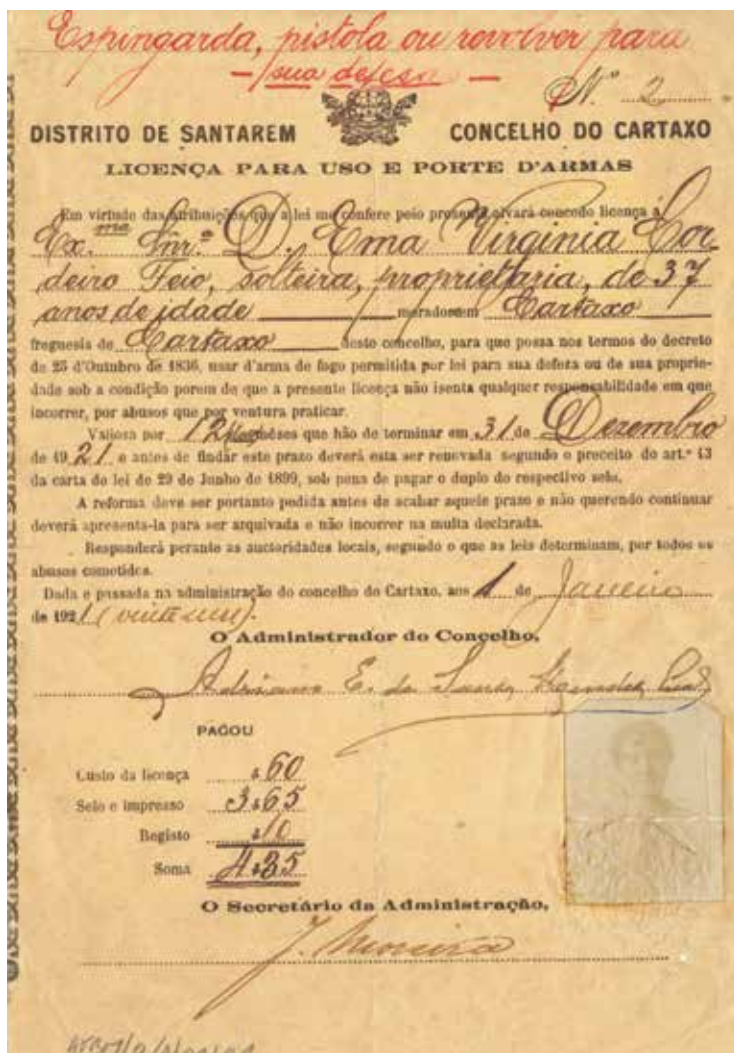 Espingarda, pistola ou revolver para
— sua defesa —
Nº 2
DISTRITO DE SANTAREM CONCELHO DO CARTAXO
LICENÇA PARA USO E PORTE D'ARMAS
Em virtude das atribuições que a lei me confere pelo presente alvará concedo licença á
Ex.ma Snr.ª D. Ema Virginia Cor-
deiro Feio, solteira, proprietaria, de 37
anos de idade morador em Cartaxo
freguesia de Cartaxo deste concelho, para que possa nos termos do decreto
de 25 d'Outubro de 1836, usar d'arma de fogo permitida por lei para sua defeza ou de sua proprie-
dade sob a condição porem de que a presente licença não isenta qualquer responsabilidade em que
incorrer, por abusos que por ventura praticar.
Valiosa por 12 mêses que hão de terminar em 31 de Dezembro
de 1921 e antes de findar este prazo deverá esta ser renovada segundo o preceito do art.º 13
da carta de lei de 29 de Junho de 1899, sob pena de pagar o duplo do respectivo selo.
A reforma deve ser portanto pedida antes de acabar aquele prazo e não querendo continuar
deverá apresenta-la para ser arquivada e não incorrer na multa declarada.
Responderá perante as auctoridades locais, segundo o que as leis determinam, por todos os
abusos cometidos.
Dada e passada na administração do concelho do Cartaxo, aos 1 de Janeiro
de 1921 (vinte e um).
O Administrador do Concelho,
Adriano E. de
PAGOU
Custo da licença $60
Selo e impresso 3$65
Registo $10
Soma 4$35
O Secretário da Administração,
J. Moreira